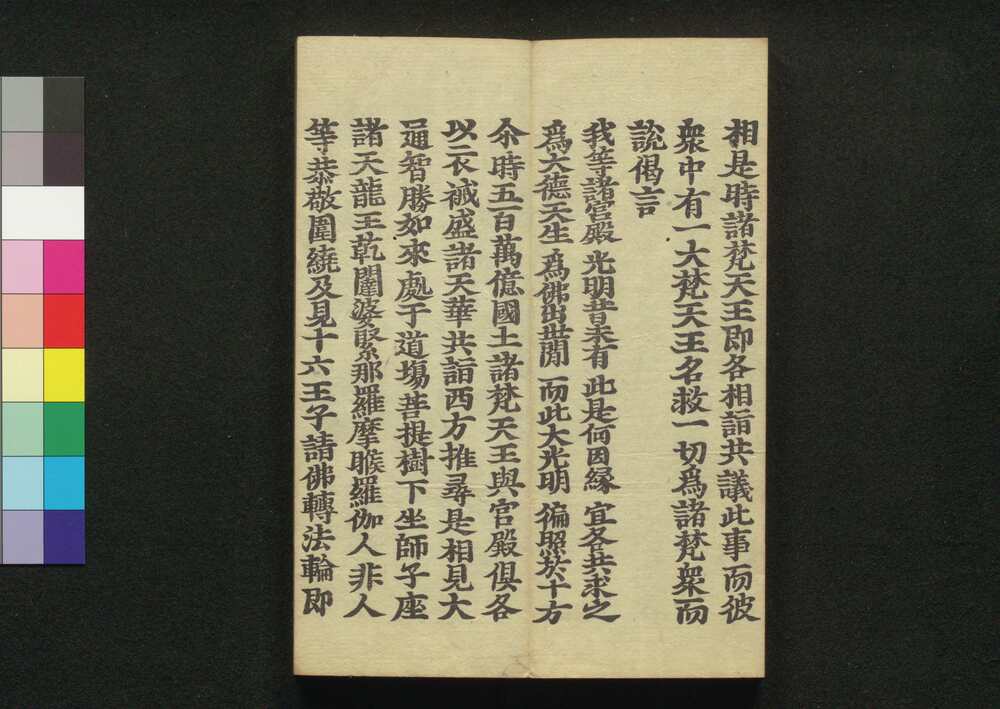 相是時諸梵天王即各相詣共議此事而彼
衆中有一大梵天王名救一切爲諸梵衆而
説偈言
我等諸宮殿 光明昔未有 此是何因縁 宜各共求之
爲大德天生 爲佛出世閒 而此大光明 徧照於十方
尒時五百萬億國土諸梵天王與宮殿俱各
以衣裓盛諸天華共詣西方推尋是相見大
通智勝如來處于道場菩提樹下坐師子座
諸天龍王乾闥婆緊那羅摩睺羅伽人非人
等恭敬圍繞及見十六王子請佛轉法輪即